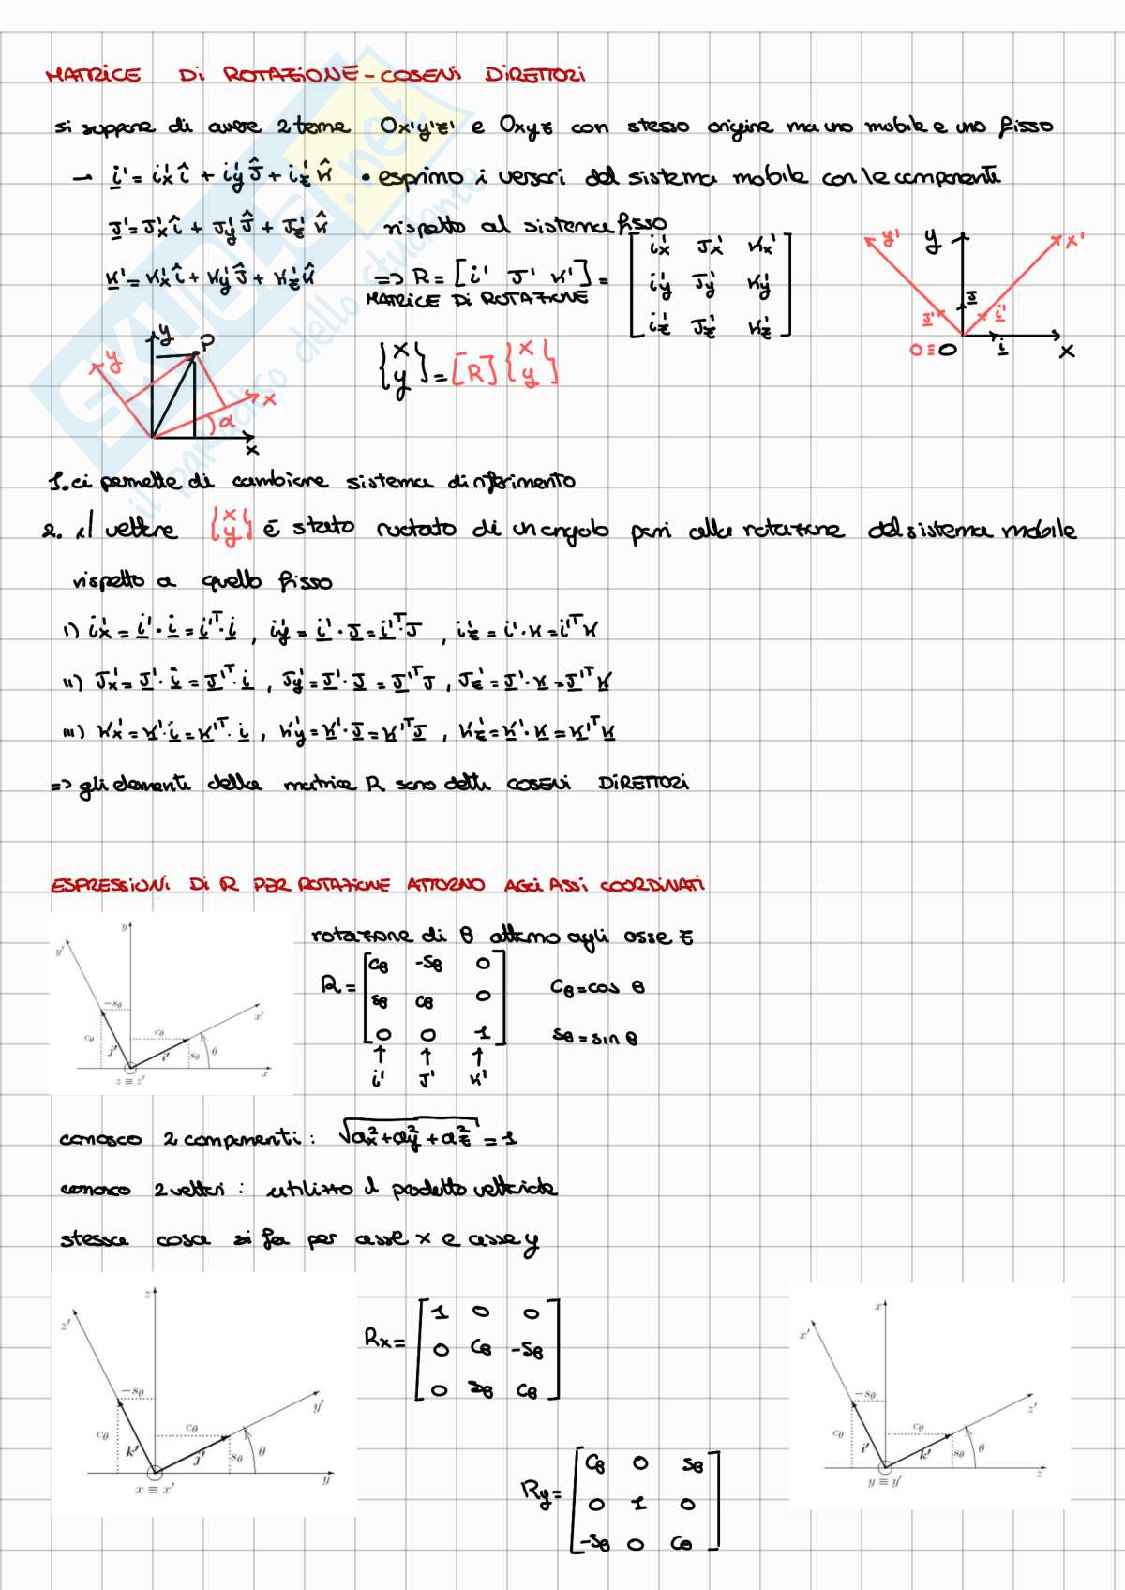 MATRICE Di ROTAZIONE - COSENi DiRETTORi
si suppone di avere 2 terne Ox'y'z' e Oxyz con stesso origine ma uno mobile e uno fisso
→ i' = i'x î + i'y ĵ + i'z k̂ • esprimo i versori del sistema mobile con le componenti
J' = J'x î + J'y ĵ + J'z k̂ rispetto al sistema fisso
k' = k'x î + k'y ĵ + k'z k̂ => R = [i' J' k'] =
MATRICE Di ROTAZIONE
i'x J'x k'x
i'y J'y k'y
i'z J'z k'z
y' y x'
J' J i'
O≡O i x
y P
y
x
α
x
{x y} = [R] {x y}
1. ci permette di cambiare sistema di riferimento
2. il vettore {x y} è stato ruotato di un angolo pari alla rotazione del sistema mobile
rispetto a quello fisso
i) i'x = i'·i = i'ᵀ·i , i'y = i'·J = i'ᵀ·J , i'z = i'·k = i'ᵀk
ii) J'x = J'·i = J'ᵀ·i , J'y = J'·J = J'ᵀJ , J'z = J'·k = J'ᵀk
iii) k'x = k'·i = k'ᵀ·i , k'y = k'·J = k'ᵀJ , k'z = k'·k = k'ᵀk
=> gli elementi della matrice R sono detti COSENi DiRETTORi
ESPRESSIONi Di R PER ROTAZIONE ATTORNO AGLi ASSi COORDiNATi
rotazione di θ attorno agli asse z
R =
cθ -sθ 0
sθ cθ 0
0 0 1
↑ ↑ ↑
i' J' k'
cθ = cos θ
sθ = sin θ
y
y'
−sθ
x'
cθ cθ
j' i' sθ θ
x
z ≡ z'
conosco 2 componenti : √a²x + a²y + a²z = 1
conosco 2 vettori : utilizzo il prodotto vettoriale
stessa cosa si fa per asse x e asse y
z
z'
−sθ
y'
cθ cθ
k' j' sθ θ
y
x ≡ x'
Rx =
1 0 0
0 cθ -sθ
0 sθ cθ
x
x'
−sθ
z'
cθ cθ
i' k' sθ θ
z
y ≡ y'
Ry =
cθ 0 sθ
0 1 0
-sθ 0 cθ
SKUOLA.net
il paradiso dello studente